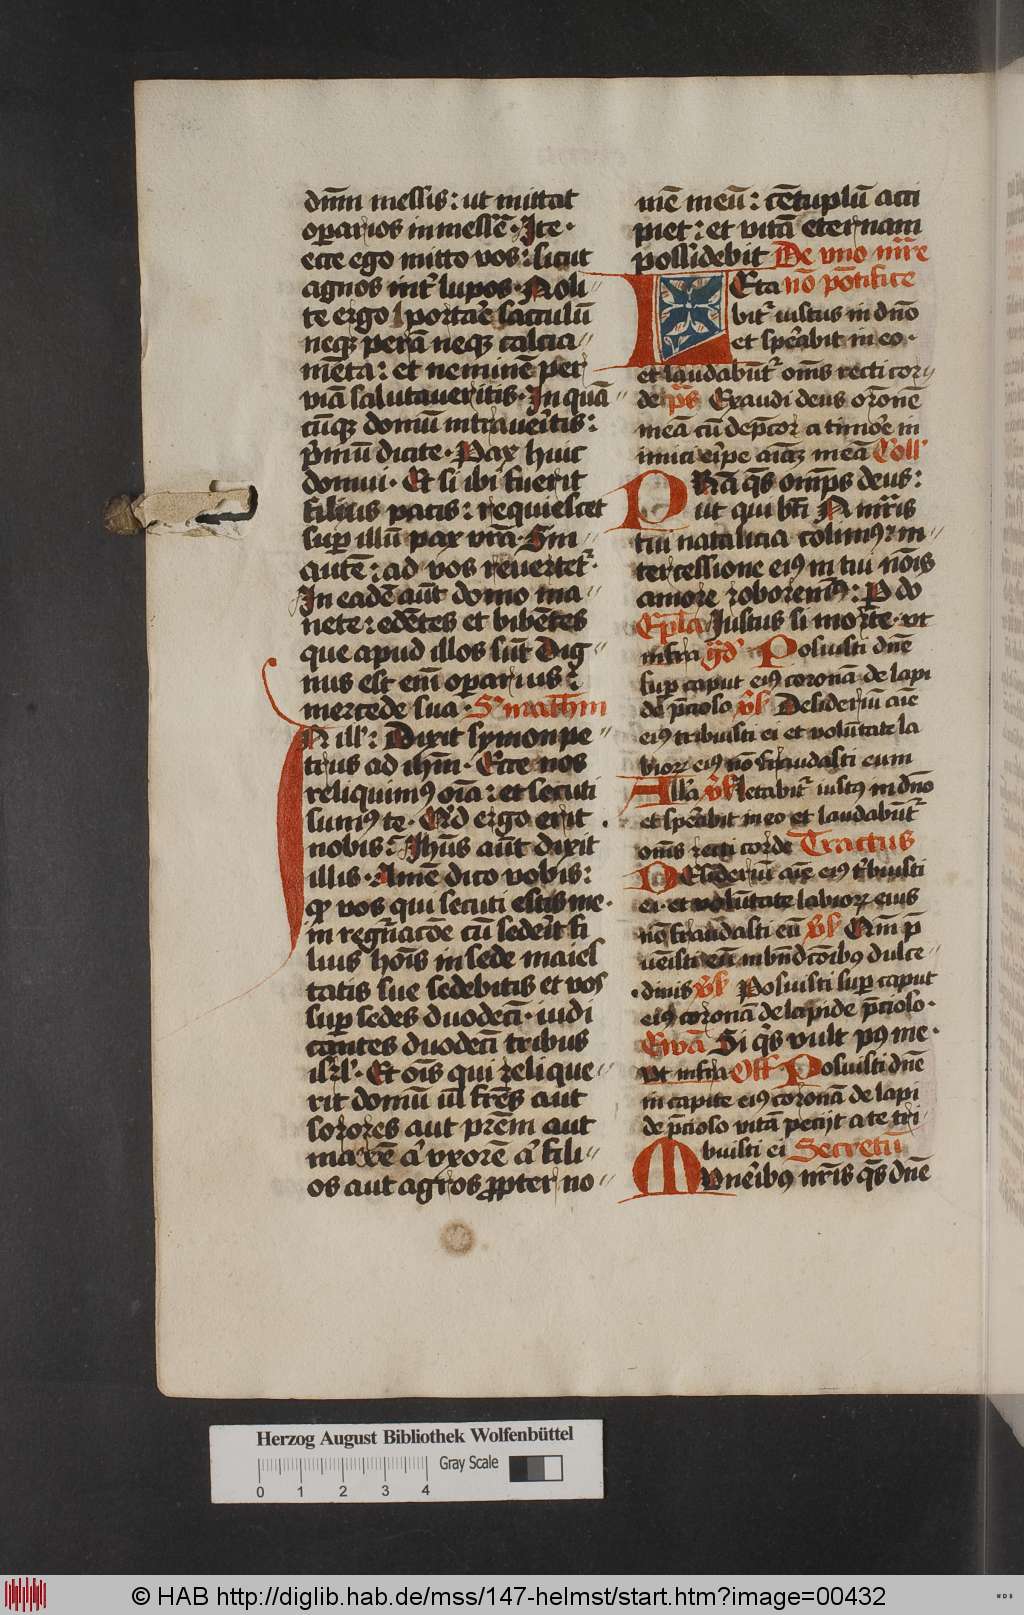 dn̄m messis: ut mittat
operarios in messē. Ite.
ecce ego mitto vos: sicut
agnos int̄ lupos. Noli
te ergo portare sacculū
neqꝫ perā neqꝫ calcia
mēta: et neminē per
viā salutaveritis. In quā
cūqꝫ domū intraveritis:
p̄mū dicite. Pax huic
domui. Et si ibi fuerit
filius pacis: requiescet
sup illū pax vrā. Sin
autē: ad vos revertet̄.
In eadē aūt domo ma
nete: edētes et bibētes
que apud illos sūt Dig
nus est em̄ operarius
mercede sua. S' mathm
In ill': Dixit symon pe
trus ad ihm̄. Ecce nos
reliquimꝰ oīa: et secuti
sumꝰ te. Qͥd ergo erit
nobis: Ihūs aūt dixit
illis. Amē dico vobis:
ꝙ vos qui secuti estis me.
in regn̄acōe cū sederit fi
lius hoīs in sede maies
tatis sue sedebitis et vos
sup sedes duodecī. iudi
cantes duodecī tribus
isrl'. Et oīs qui relique
rit domū ul' frēs aut
sorores aut prēm aut
matrē aͭ vxorē aͭ fili
os aut agros ꝓpter no
mē meū: cētuplū acci
piet: et vitā eternam
possidebit De vno mr̄e
Leta nō pōtifice
bit̄ iustus in dn̄o
et sperabit in eo.
et laudabūt̄ om̄s recti cor
de ps̄ Exaudi deus orōnē
meā cū dep̄cor a timore in
imici eripe aīaꝫ meā Coll'
PRā qs̄ omp̄s deus:
ut qui bt̄i N mr̄is
tui natalicia colimꝰ: in
tercessione eiꝰ in tui nōis
amore roboremꝰ: P do
Epl̄a Iustus si morte. vt
infra gͣd' Posuisti dn̄e
sup caput eiꝰ coronā de lapi
de p̄cioso v̄s Desideriū aīe
eiꝰ tribuisti ei et volūtate la
bioꝝ eiꝰ nō fraudasti eum
All'a v̄s letabit̄ iustꝰ in dn̄o
et sperabit in eo et laudabūt̄
om̄s recti corde Tractus
Desideriū aīe eiꝰ tribuisti
ei. et volūtate labioꝝ eius
nō fraudasti eū v̄s Qm̄ p̄
uenisti eū in bn̄dcōibus dulce
dinis v̄s Posuisti sup caput
eiꝰ coronā de lapide p̄cioso.
Ewā Si qͥs vult pꝰ me.
vt infra Off Posuisti dn̄e
in capite eiꝰ coronā de lapi
de p̄cioso vitā petijt a te tri
buisti ei Secretū
Munēibꝰ nr̄is qs̄ dn̄e
Herzog August Bibliothek Wolfenbüttel
Gray Scale
0 1 2 3 4
© HAB http://diglib.hab.de/mss/147-helmst/start.htm?image=00432